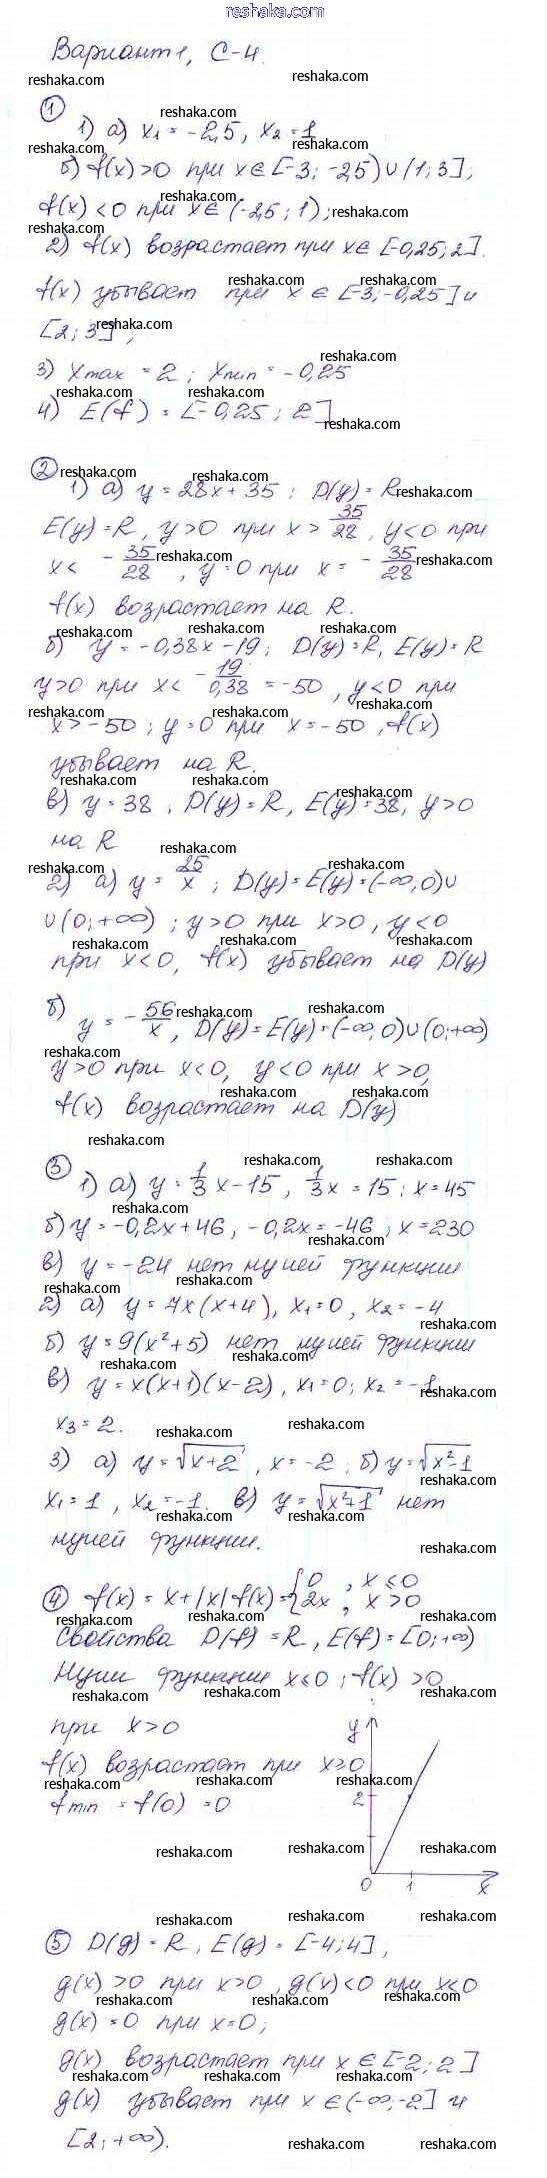 Вариант 1, С-4.
① 1) а) x₁ = -2,5, x₂ = 1
б) f(x) > 0 при x ∈ [-3; -2,5) ∪ (1; 3];
f(x) < 0 при x ∈ (-2,5; 1);
2) f(x) возрастает при x ∈ [-0,25; 2].
f(x) убывает при x ∈ [-3; -0,25] и
[2; 3];
3) xmax = 2; xmin = -0,25
4) E(f) = [-0,25; 2]
② 1) а) y = 28x + 35; D(y) = R
E(y) = R, y > 0 при x > 35/28, y < 0 при
x < -35/28, y = 0 при x = -35/28
f(x) возрастает на R.
б) y = -0,38x - 19; D(y) = R, E(y) = R
y > 0 при x < -19/0,38 = -50, y < 0 при
x > -50; y = 0 при x = -50, f(x)
убывает на R.
в) y = 38, D(y) = R, E(y) = 38, y > 0
на R
2) а) y = 25/x; D(y) = E(y) = (-∞, 0) ∪
∪ (0; +∞); y > 0 при x > 0, y < 0
при x < 0, f(x) убывает на D(y)
б) y = -56/x, D(y) = E(y) = (-∞; 0) ∪ (0; +∞)
y > 0 при x < 0, y < 0 при x > 0,
f(x) возрастает на D(y)
③ 1) а) y = 1/3 x - 15, 1/3 x = 15; x = 45
б) y = -0,2x + 46, -0,2x = -46; x = 230
в) y = -24 нет нулей функции
2) а) y = 7x(x + 4), x₁ = 0, x₂ = -4
б) y = 9(x² + 5) нет нулей функции
в) y = x(x + 1)(x - 2), x₁ = 0; x₂ = -1
x₃ = 2.
3) а) y = √(x + 2), x = -2; б) y = √(x² - 1)
x₁ = 1, x₂ = -1. в) y = √(x² + 1) нет
нулей функции.
④ f(x) = x + |x| f(x) = {0, x ≤ 0
2x, x > 0
Свойства D(f) = R, E(f) = [0; +∞)
Нули функции x ≤ 0; f(x) > 0
при x > 0
f(x) возрастает при x ≥ 0
fmin = f(0) = 0
y
2
0 1 x
⑤ D(g) = R, E(g) = [-4; 4],
g(x) > 0 при x > 0, g(x) < 0 при x < 0
g(x) = 0 при x = 0;
g(x) возрастает при x ∈ [-2; 2]
g(x) убывает при x ∈ (-∞; -2] и
[2; +∞).